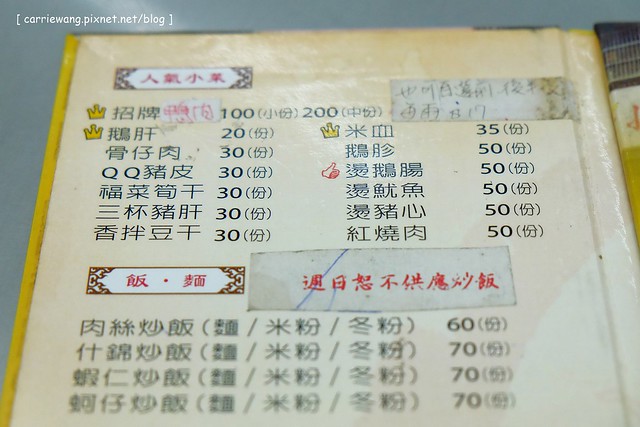 [ carriewang.pixnet.net/blog ]
人氣小菜
招牌鴨肉 100(小份) 200(中份)
鵝肝 20(份)
骨仔肉 30(份)
QQ豬皮 30(份)
福菜筍干 30(份)
三杯豬肝 30(份)
香拌豆干 30(份)
米血 35(份)
鵝胗 50(份)
燙鵝腸 50(份)
燙魷魚 50(份)
燙豬心 50(份)
紅燒肉 50(份)
飯・麵
週日恕不供應炒飯
肉絲炒飯(麵/米粉/冬粉) 60(份)
什錦炒飯(麵/米粉/冬粉) 70(份)
蝦仁炒飯(麵/米粉/冬粉) 70(份)
蚵仔炒飯(麵/米粉/冬粉) 70(份)